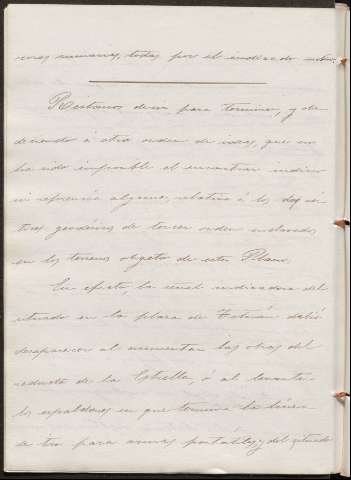 varas numerarias, todas por el indicado autor.
Réstanos decir para terminar, y ate
diendo á otro orden de ideas, que nos
ha sido imposible el encontrar indicio
ni referencia alguna, relativa á los dos vér
tices geodésicos de tercer orden enclavados
en los terrenos objeto de este Plano.
En efecto, la señal indicadora del
situado en la plaza de Tetuán debió
desaparecer al aumentar las obras del
reducto de la Estrella, ó al levantar
los espaldones en que termina la línea
de tiro para armas portátiles, y del situado